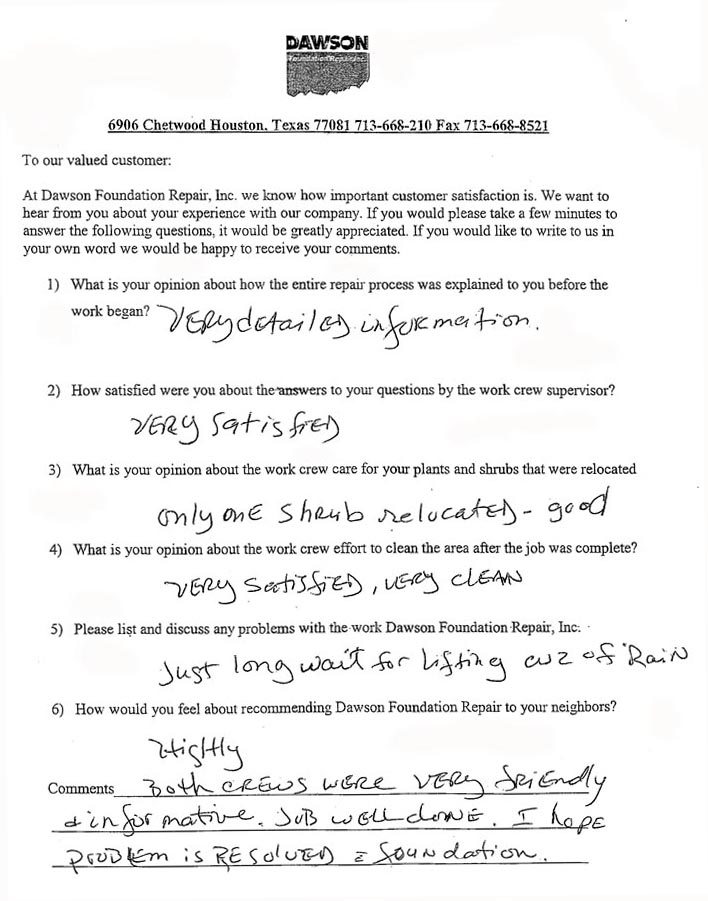 DAWSON
Foundation Repair, Inc.
6906 Chetwood Houston, Texas 77081 713-668-210 Fax 713-668-8521
To our valued customer:
At Dawson Foundation Repair, Inc. we know how important customer satisfaction is. We want to
hear from you about your experience with our company. If you would please take a few minutes to
answer the following questions, it would be greatly appreciated. If you would like to write to us in
your own word we would be happy to receive your comments.
1) What is your opinion about how the entire repair process was explained to you before the
work began? VERY detailED information.
2) How satisfied were you about the answers to your questions by the work crew supervisor?
VERY SatisfiED
3) What is your opinion about the work crew care for your plants and shrubs that were relocated
only onE Shrub relocatED - good
4) What is your opinion about the work crew effort to clean the area after the job was complete?
VERY SatisfiED, VERY CLEAN
5) Please list and discuss any problems with the work Dawson Foundation Repair, Inc.
Just long wait for Lifting cuz of RaiN
6) How would you feel about recommending Dawson Foundation Repair to your neighbors?
HigHly
Comments Both CREWS WERE VERY friEndly
& informative. JOB WELL donE. I hopE
PROBLEm is RESolvED = foundation.